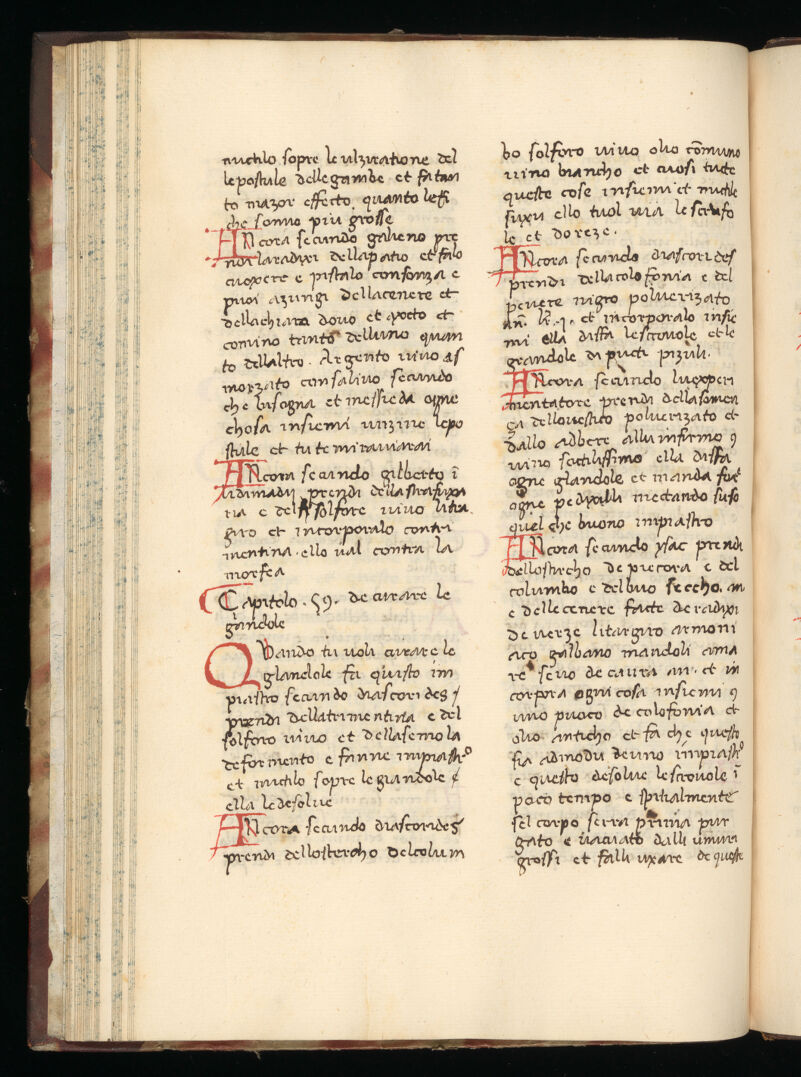 mictilo sopre le ulziratione del
le postule delle gambe et fa tan
to mazor effecto quanto le fi
che sonno piu grosse
ANcora secundo galieno pre
ndi la radixi dellapatio et falo
cuoxere e pistalo con sonza e
puoi azungi della cenere et
della chiara dovo et aceto et
comino tanto delluno quan
to dellaltro. Argento uiuo as
morzato con saliuo secundo
che bisogna et messieda ogne
chosa insiemi unzine le po
stule et tu te miraviarai
ANcora secundo gilberto ī
prendi della strafixa
ria e del solfore uiuo lita
giro et incorporalo con tri
mentina. ello ual contra la
morfea
Capitolo. 59. de curare le
glandole
QUando tu uoli curare le
glandole fa quisto im
piastro secundo diascorides
prendi della trimentina e del
solforo uiuo et della semola
de formento e fanne impiastro
et mictilo sopre le giandole
ella le desolue
ANcora secundo diascorides
prendi dello stercho del colum
bo solforo uiuo olio cōmuno
uino biancho et cuosi tucte
queste cose insiemi et mictile
suxu ello tuol uia le scrufo
le et doreze.
ANcora secundo diascorides
prendi della colofonia e del
peuere nigro poluerizato
an. et incorporalo insie
mi ella disfa le scrouole et le
grandole di pueti pizuli.
ANcora secundo luexperi
mentatore prendi della somen
ça poluerizato et
dallo adbere allu infirmo 9
uino sectilissimo ella disfa
ogne glandole et manda fore
ogne mectando suso
quel che buono impiastro
ANcora secundo ysac prendi
dello stircho de piecora e del
columbo e del buo seccho. an
e delle cenere facte de radixi
de uerze litargiro armoni
aco galbano mandoli ama
re seuo de caura an. et in
corpora ogni cosa insiemi 9
uno puoco de colofonia et
olio anticho et fa che questo
sia admodu deuno impiastro
e questo desolue le scrouole ī
poco tempo e spitialmente
sel corpo serra prima pur
gato e uacuato dalli umuri
grossi et falli uxare de queste